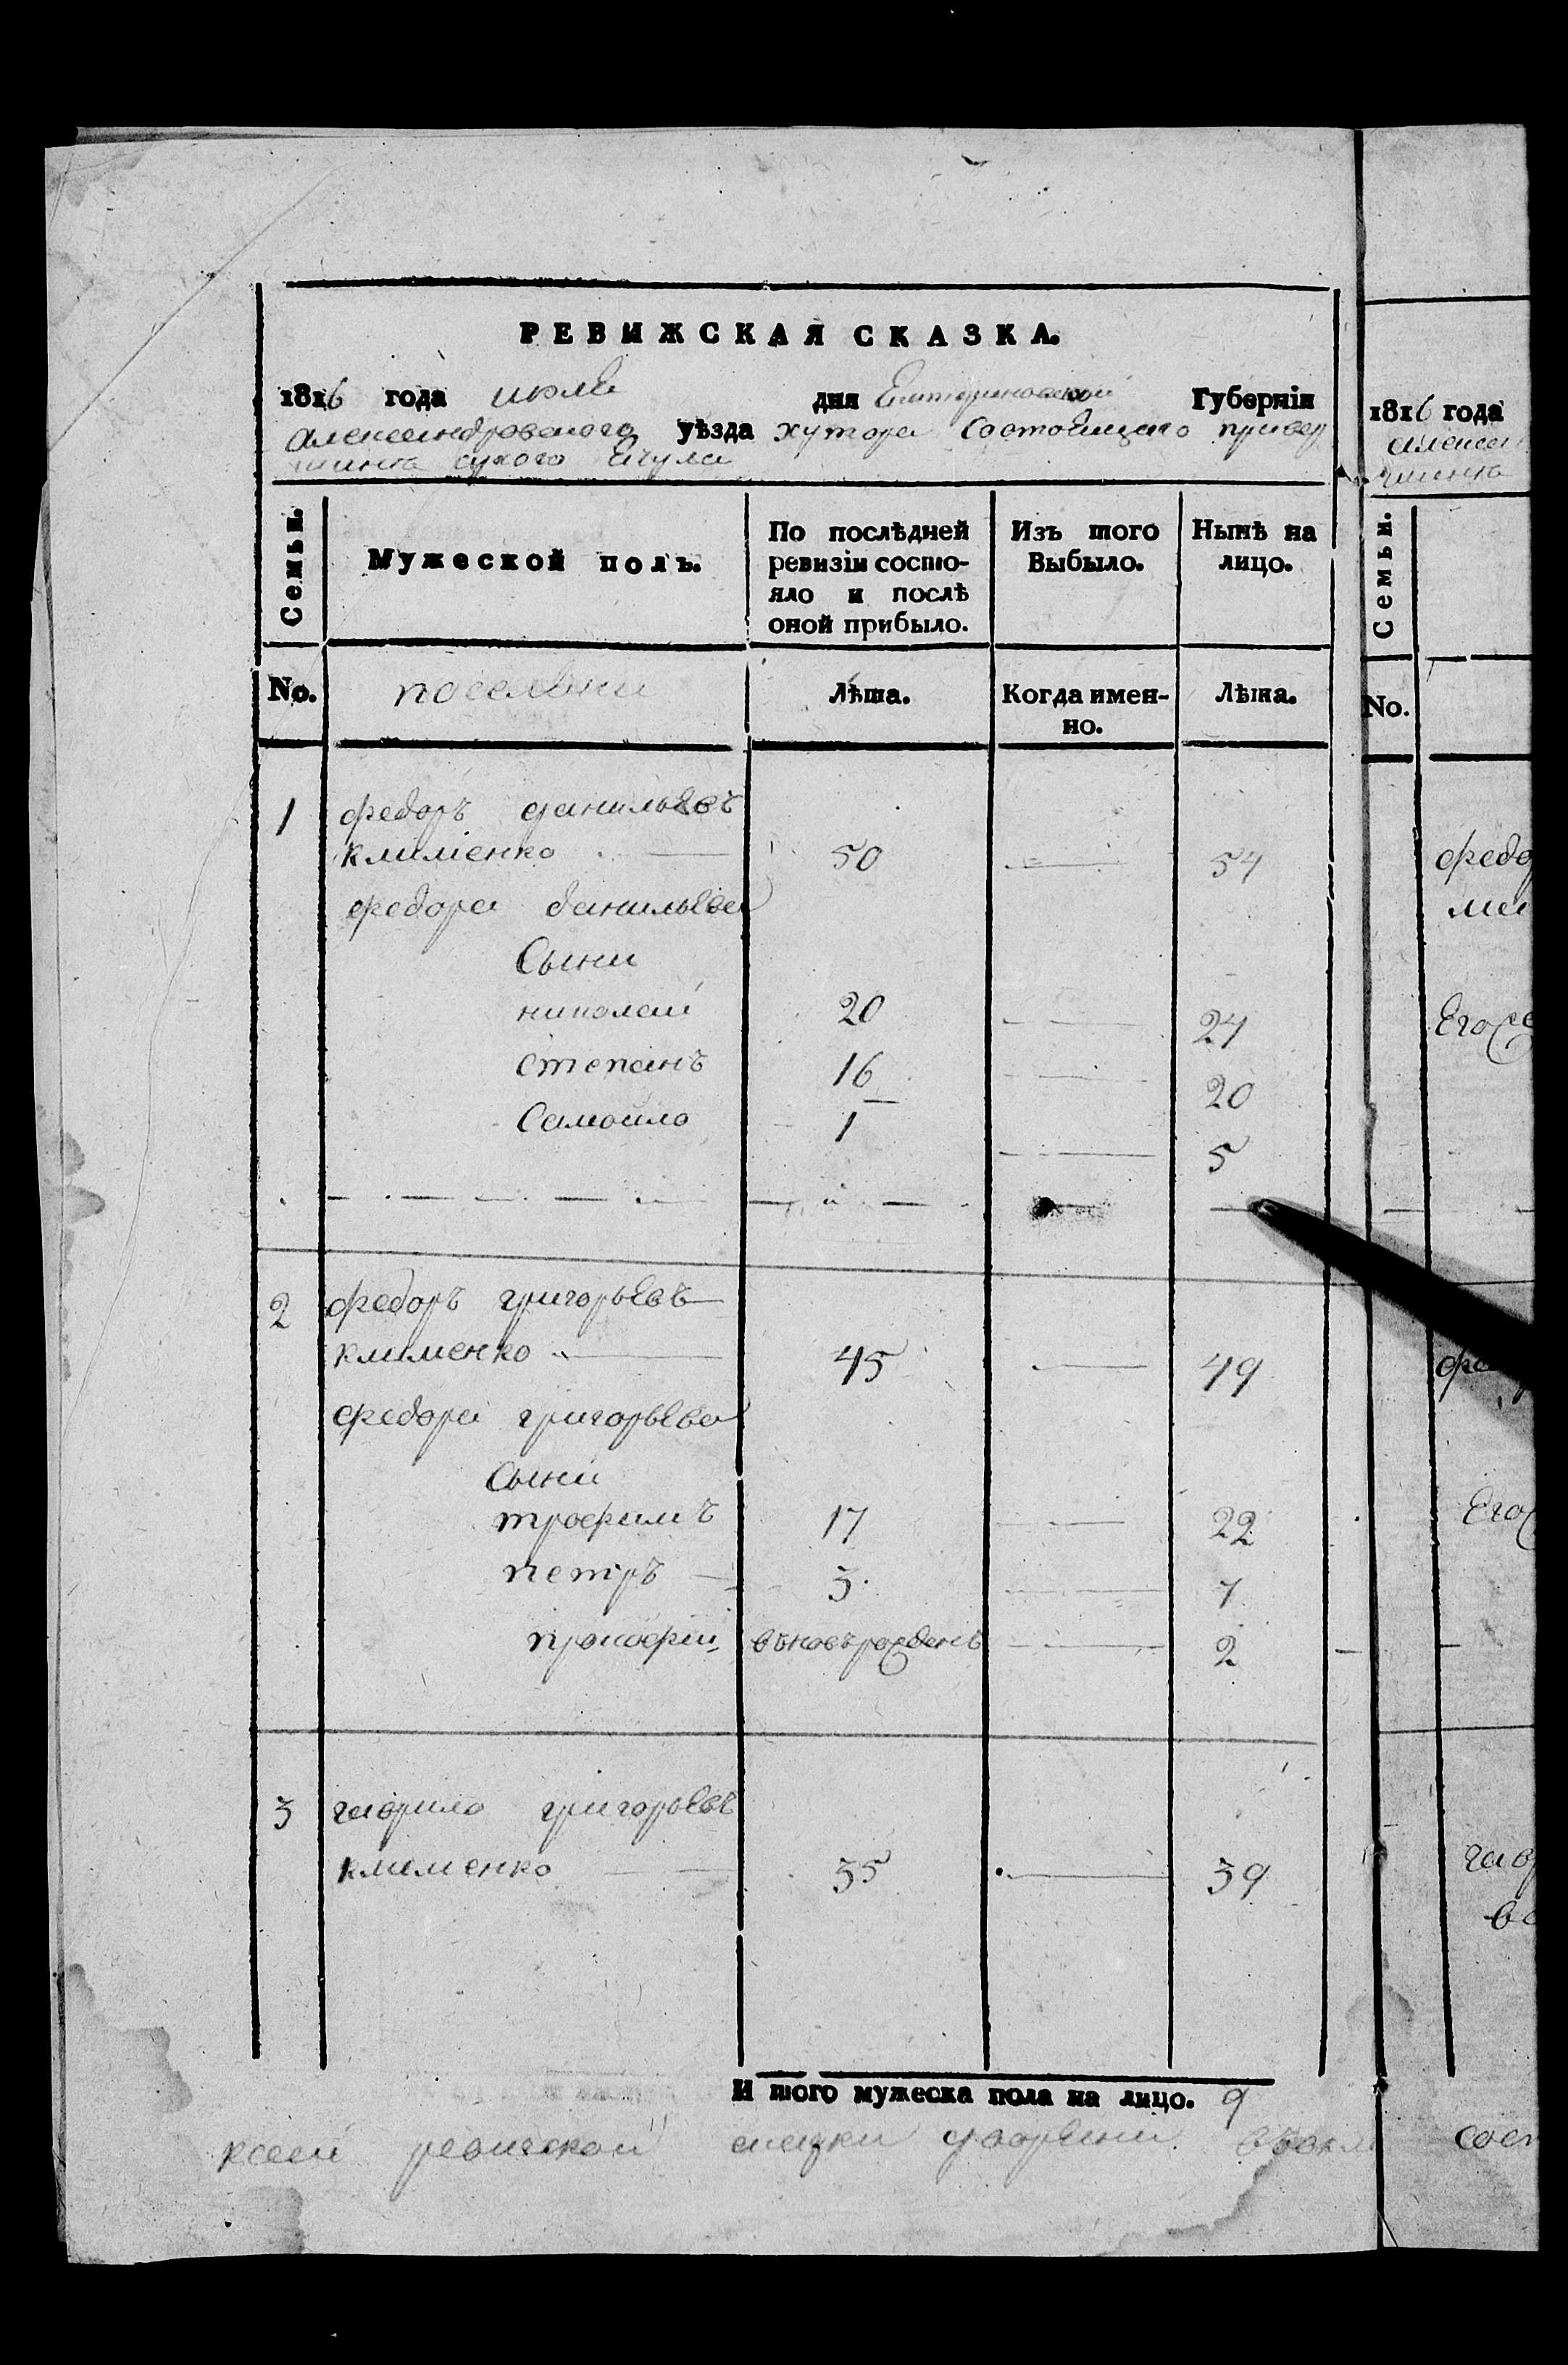 РЕВИЖСКАЯ СКАЗКА.
1816 года июля дня Екатериновской Губерніи
александровского уѣзда хутора Состоящаго привер
шинѣ сухого Ягула
Семьи.
Мужеской полъ.
По послѣдней ревизіи состо-
яло и послѣ
оной прибыло.
Изъ того
Выбыло.
Нынѣ на
лицо.
No.
поселяни
Лѣта.
Когда имен-
но.
Лѣта.
1 федоръ данильевъ
клименко 50 54
федора данильева
Сыни
николай 20 24
степанъ 16 20
Самойло 1 5
2 федоръ григорьевъ
клименко 45 49
федора григорьева
Сыни
трофимъ 17 22
петръ 3 7
прокофій вновърожденъ 2
3 гаврило григорьевъ
клименко 35 39
И того мужеска пола на лицо. 9
ксей ревиской сказки дворянин
1816 года
алексан
шинѣ
Семьи.
No.
федо
Его
Его
гав
сос